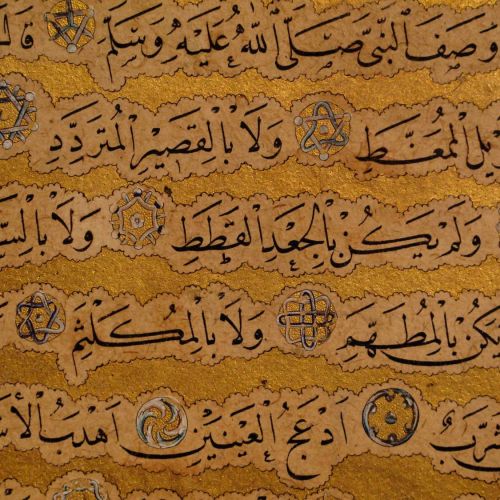 وَصَفَ النَّبِيَّ صَلَّى اللهُ عَلَيْهِ وَسَلَّمَ
الْمُمَّغِطِ وَلَا بِالْقَصِيرِ الْمُتَرَدِّدِ
وَلَمْ يَكُنْ بِالْجَعْدِ الْقَطَطِ وَلَا
بِالْمُطَهَّمِ وَلَا بِالْمُكَلْثَمِ
أَدْعَجُ الْعَيْنَيْنِ أَهْدَبُ